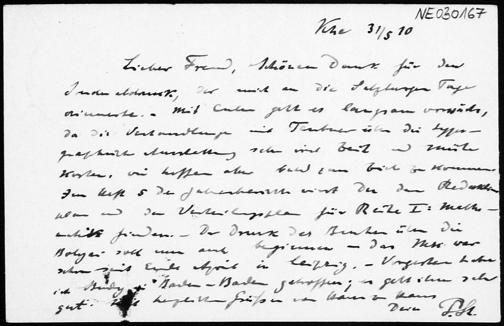 NE030167
Khe 31/5 10
Lieber Freund, schönen Dank für den
Sonderabdruck, der mich an die Salzburger Tage
erinnerte. – Mit Euler geht es langsam vorwärts,
da die Verhandlungen mit Teubner über die typo-
graphische Ausstattung sehr viel Zeit und Mühe
kosten, wir hoffen aber bald zum Ziele zu kommen.
Im Heft 5 der Jahresberichte wirst Du den Redaktions
plan und den Verteilungsplan für Reihe I: Math-
ematik finden. – Der Druck des Buches über die
Bolyai soll nun auch beginnen – das Mss war
schon seit Ende April in Leipzig. – Vorgestern habe
ich in Baden-Baden getroffen; es geht ihm sehr
gut. Mit herzlichen Grüssen von Haus zu Haus
Dein P. St.